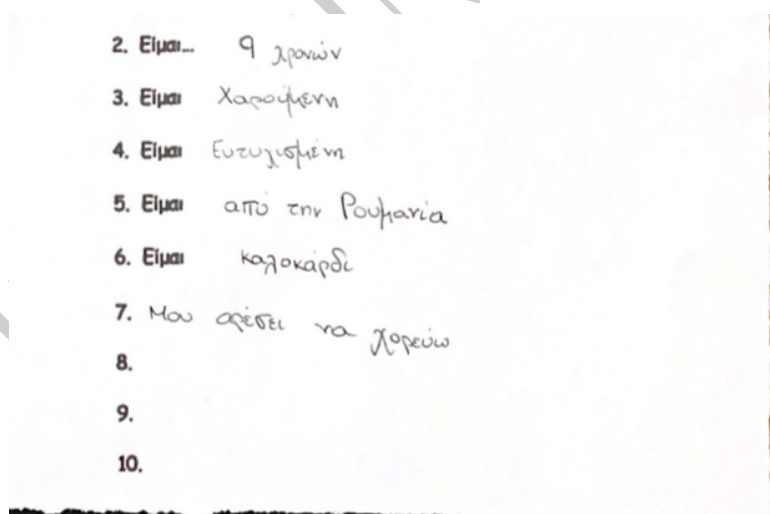 2. Είμαι... 9 χρονών
3. Είμαι Χαρούμενη
4. Είμαι Ευτυχισμένη
5. Είμαι από την Ρουμανία
6. Είμαι καλοκάρδι
7. Μου αρέσει να χορεύω
8.
9.
10.